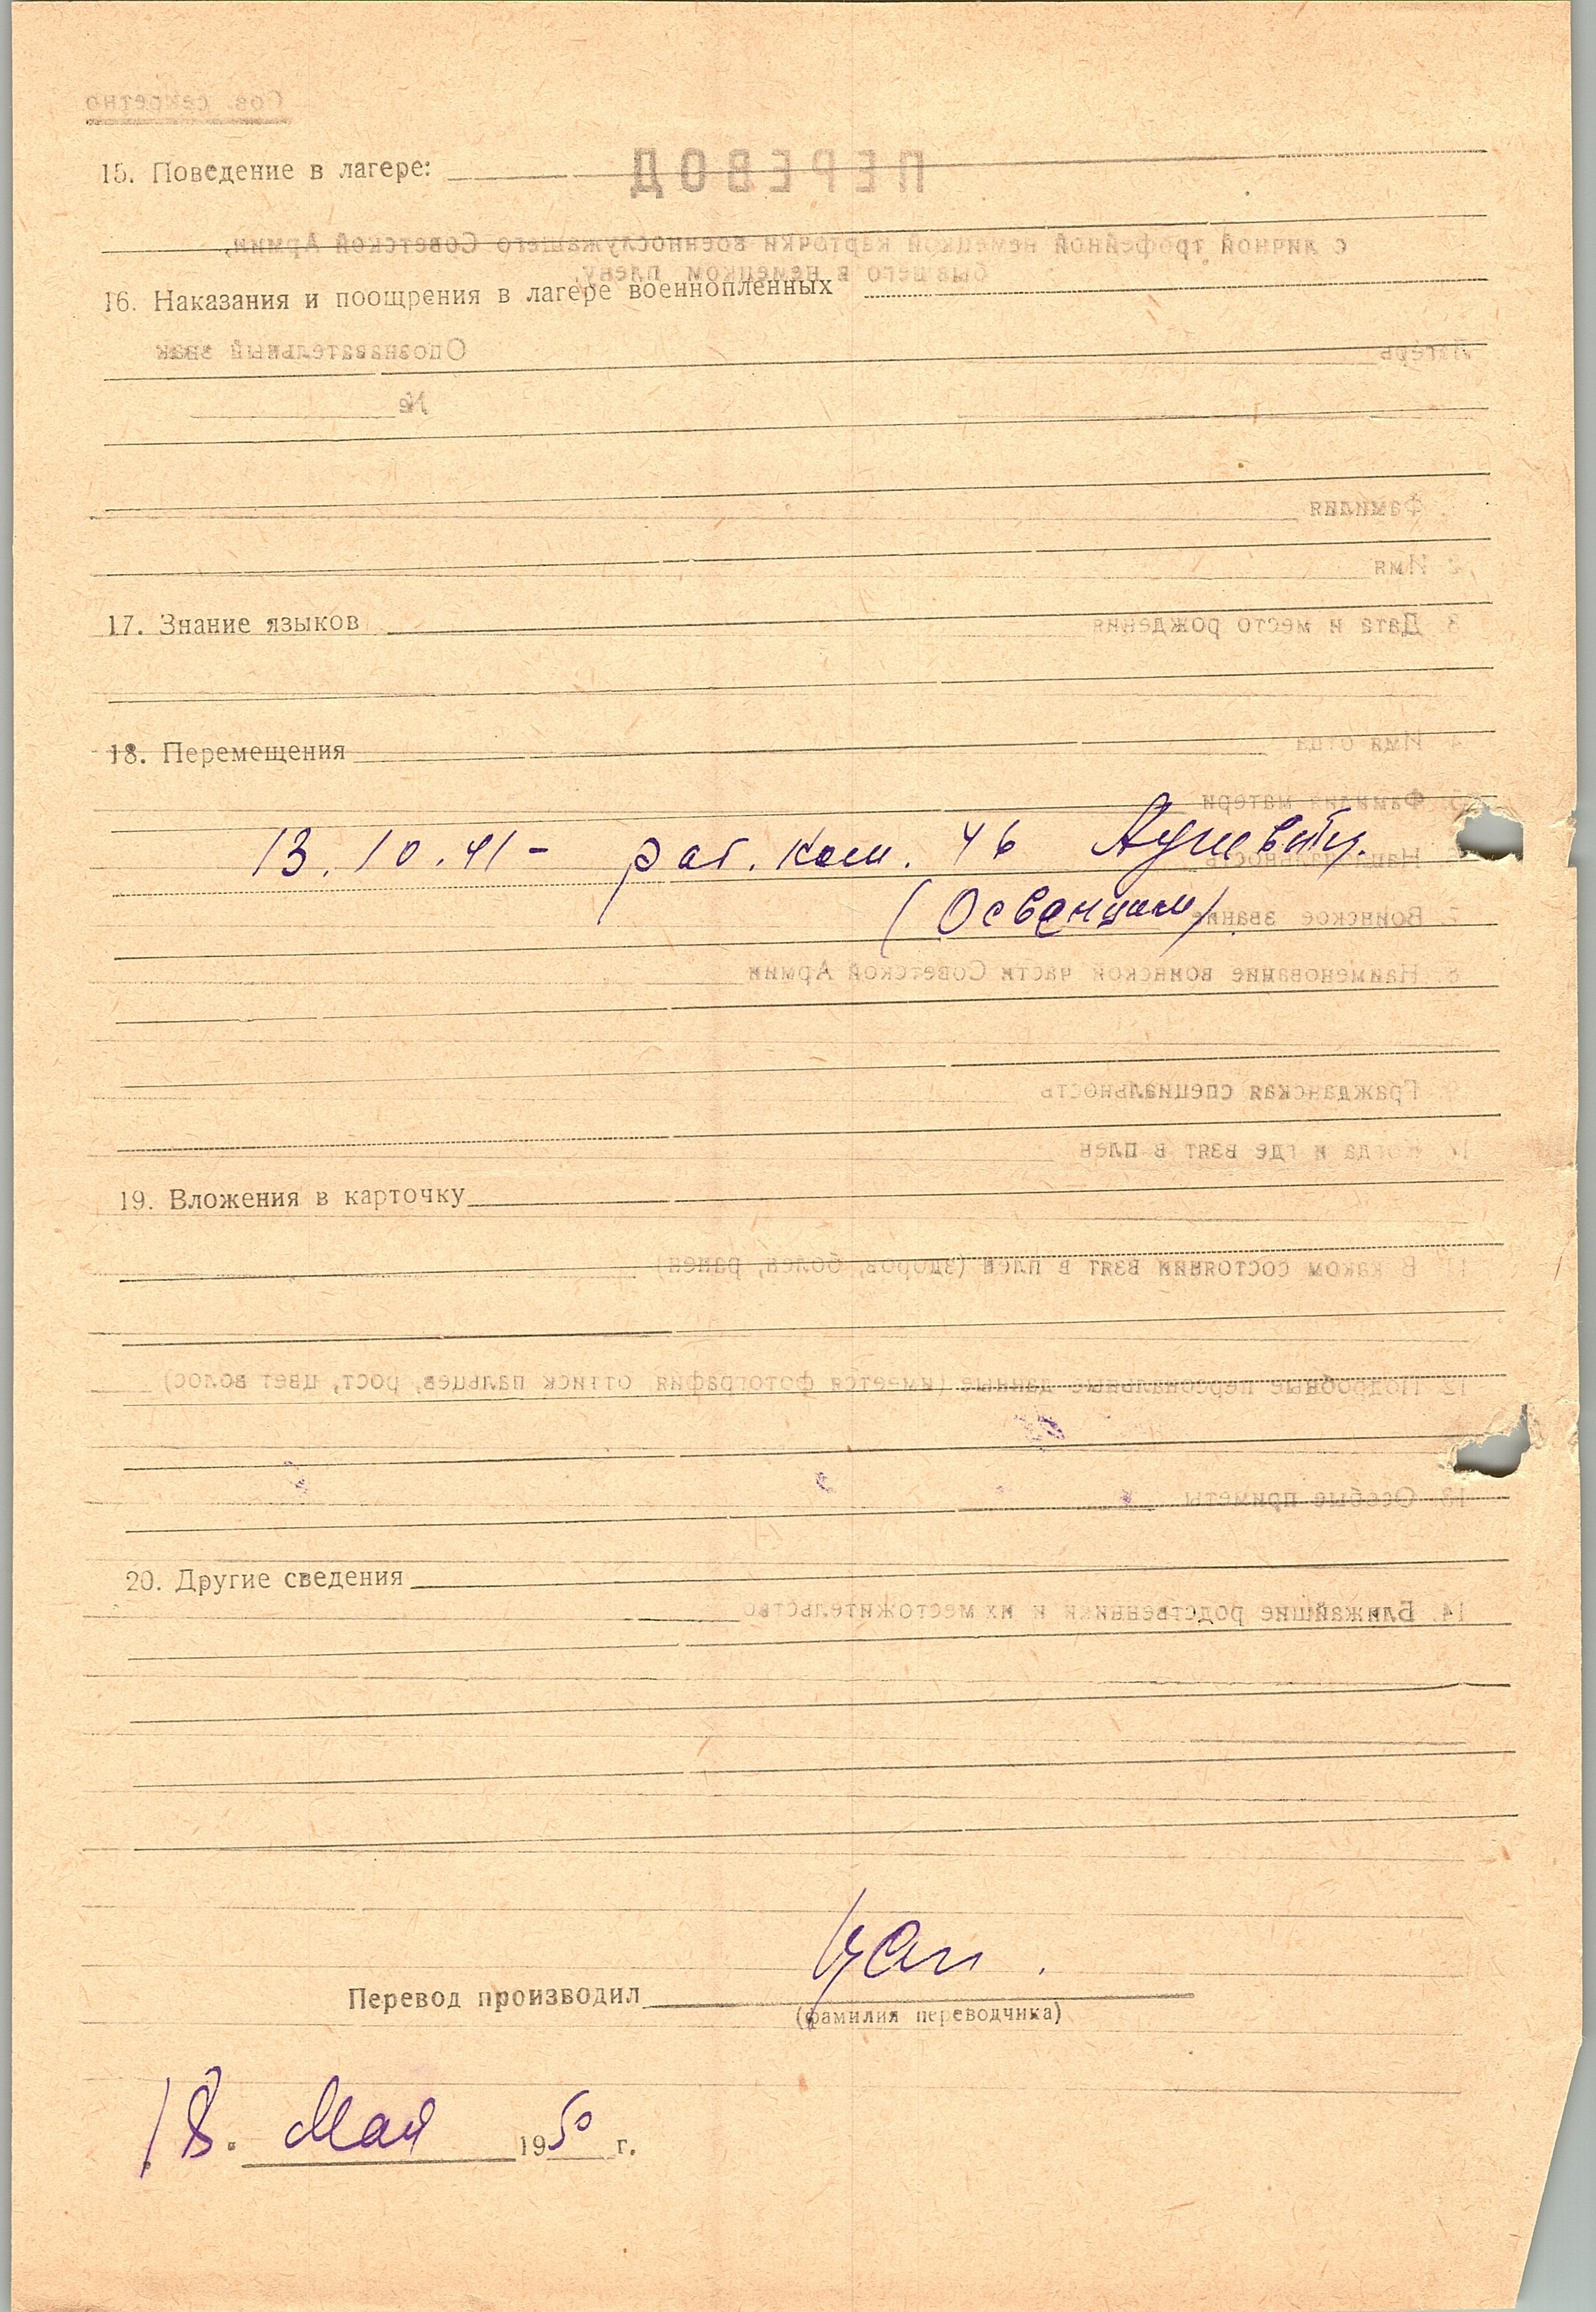 15. Поведение в лагере:
16. Наказания и поощрения в лагере военнопленных
17. Знание языков
18. Перемещения
13.10.41 - раб. ком. 46 Аушвитц.
(Освенцим)
19. Вложения в карточку
20. Другие сведения
Перевод производил
(фамилия переводчика)
18. Мая 1950 г.